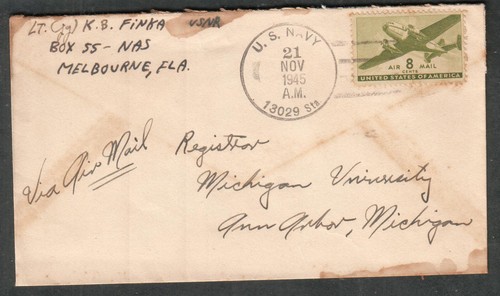 LT. (jg) K.B. FINKA USNR
BOX 55 - NAS
MELBOURNE, FLA.
U.S. NAVY
21
NOV
1945
A.M.
13029 Sta
AIR 8 MAIL
CENTS
UNITED STATES OF AMERICA
Via Air Mail
Registrar
Michigan University
Ann Arbor, Michigan